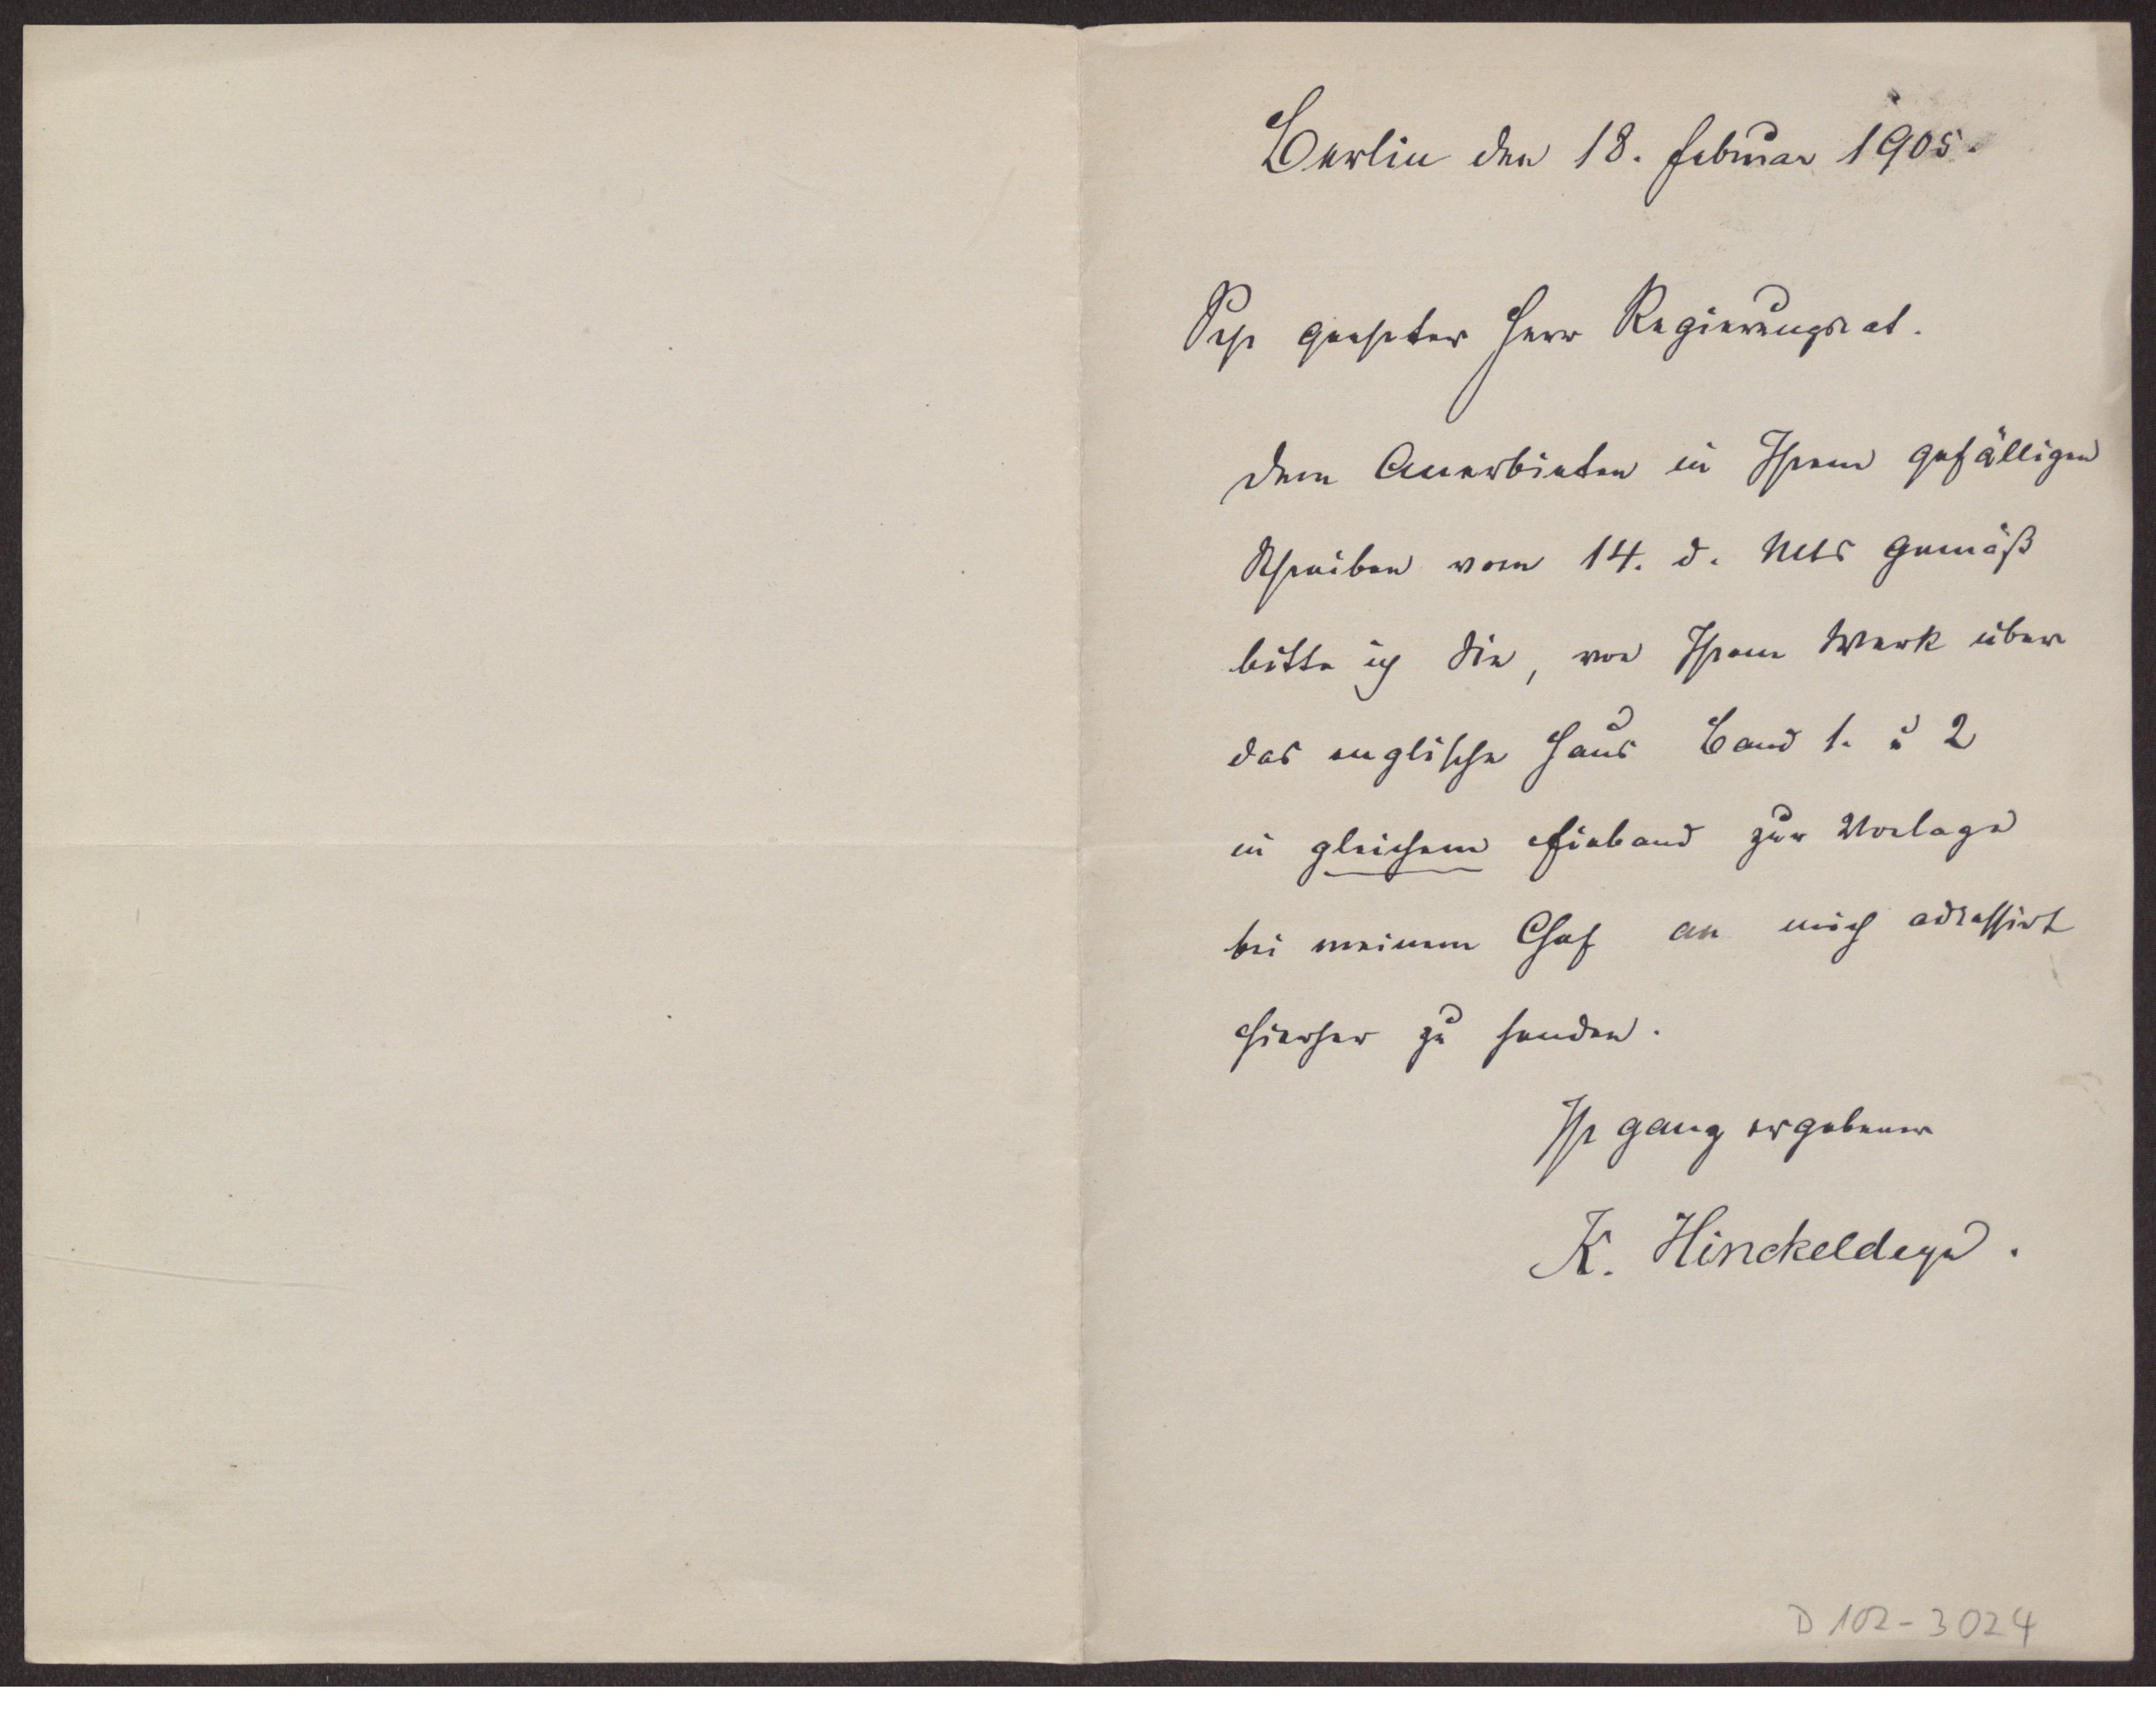 Berlin den 18. Februar 1905.
Sehr geehrter Herr Regierungsrat.
Dem Anerbieten in Ihrem gefälligen
Schreiben vom 14. d. Mts gemäß
bitte ich Sie, von Ihrem Werk über
das englische Haus Band 1. u 2
in gleichem Einband zur Vorlage
bei meinem Chef an mich adressirt
hierher zu senden.
Ihr ganz ergebener
K. Hinckeldeyn.
D 102-3024